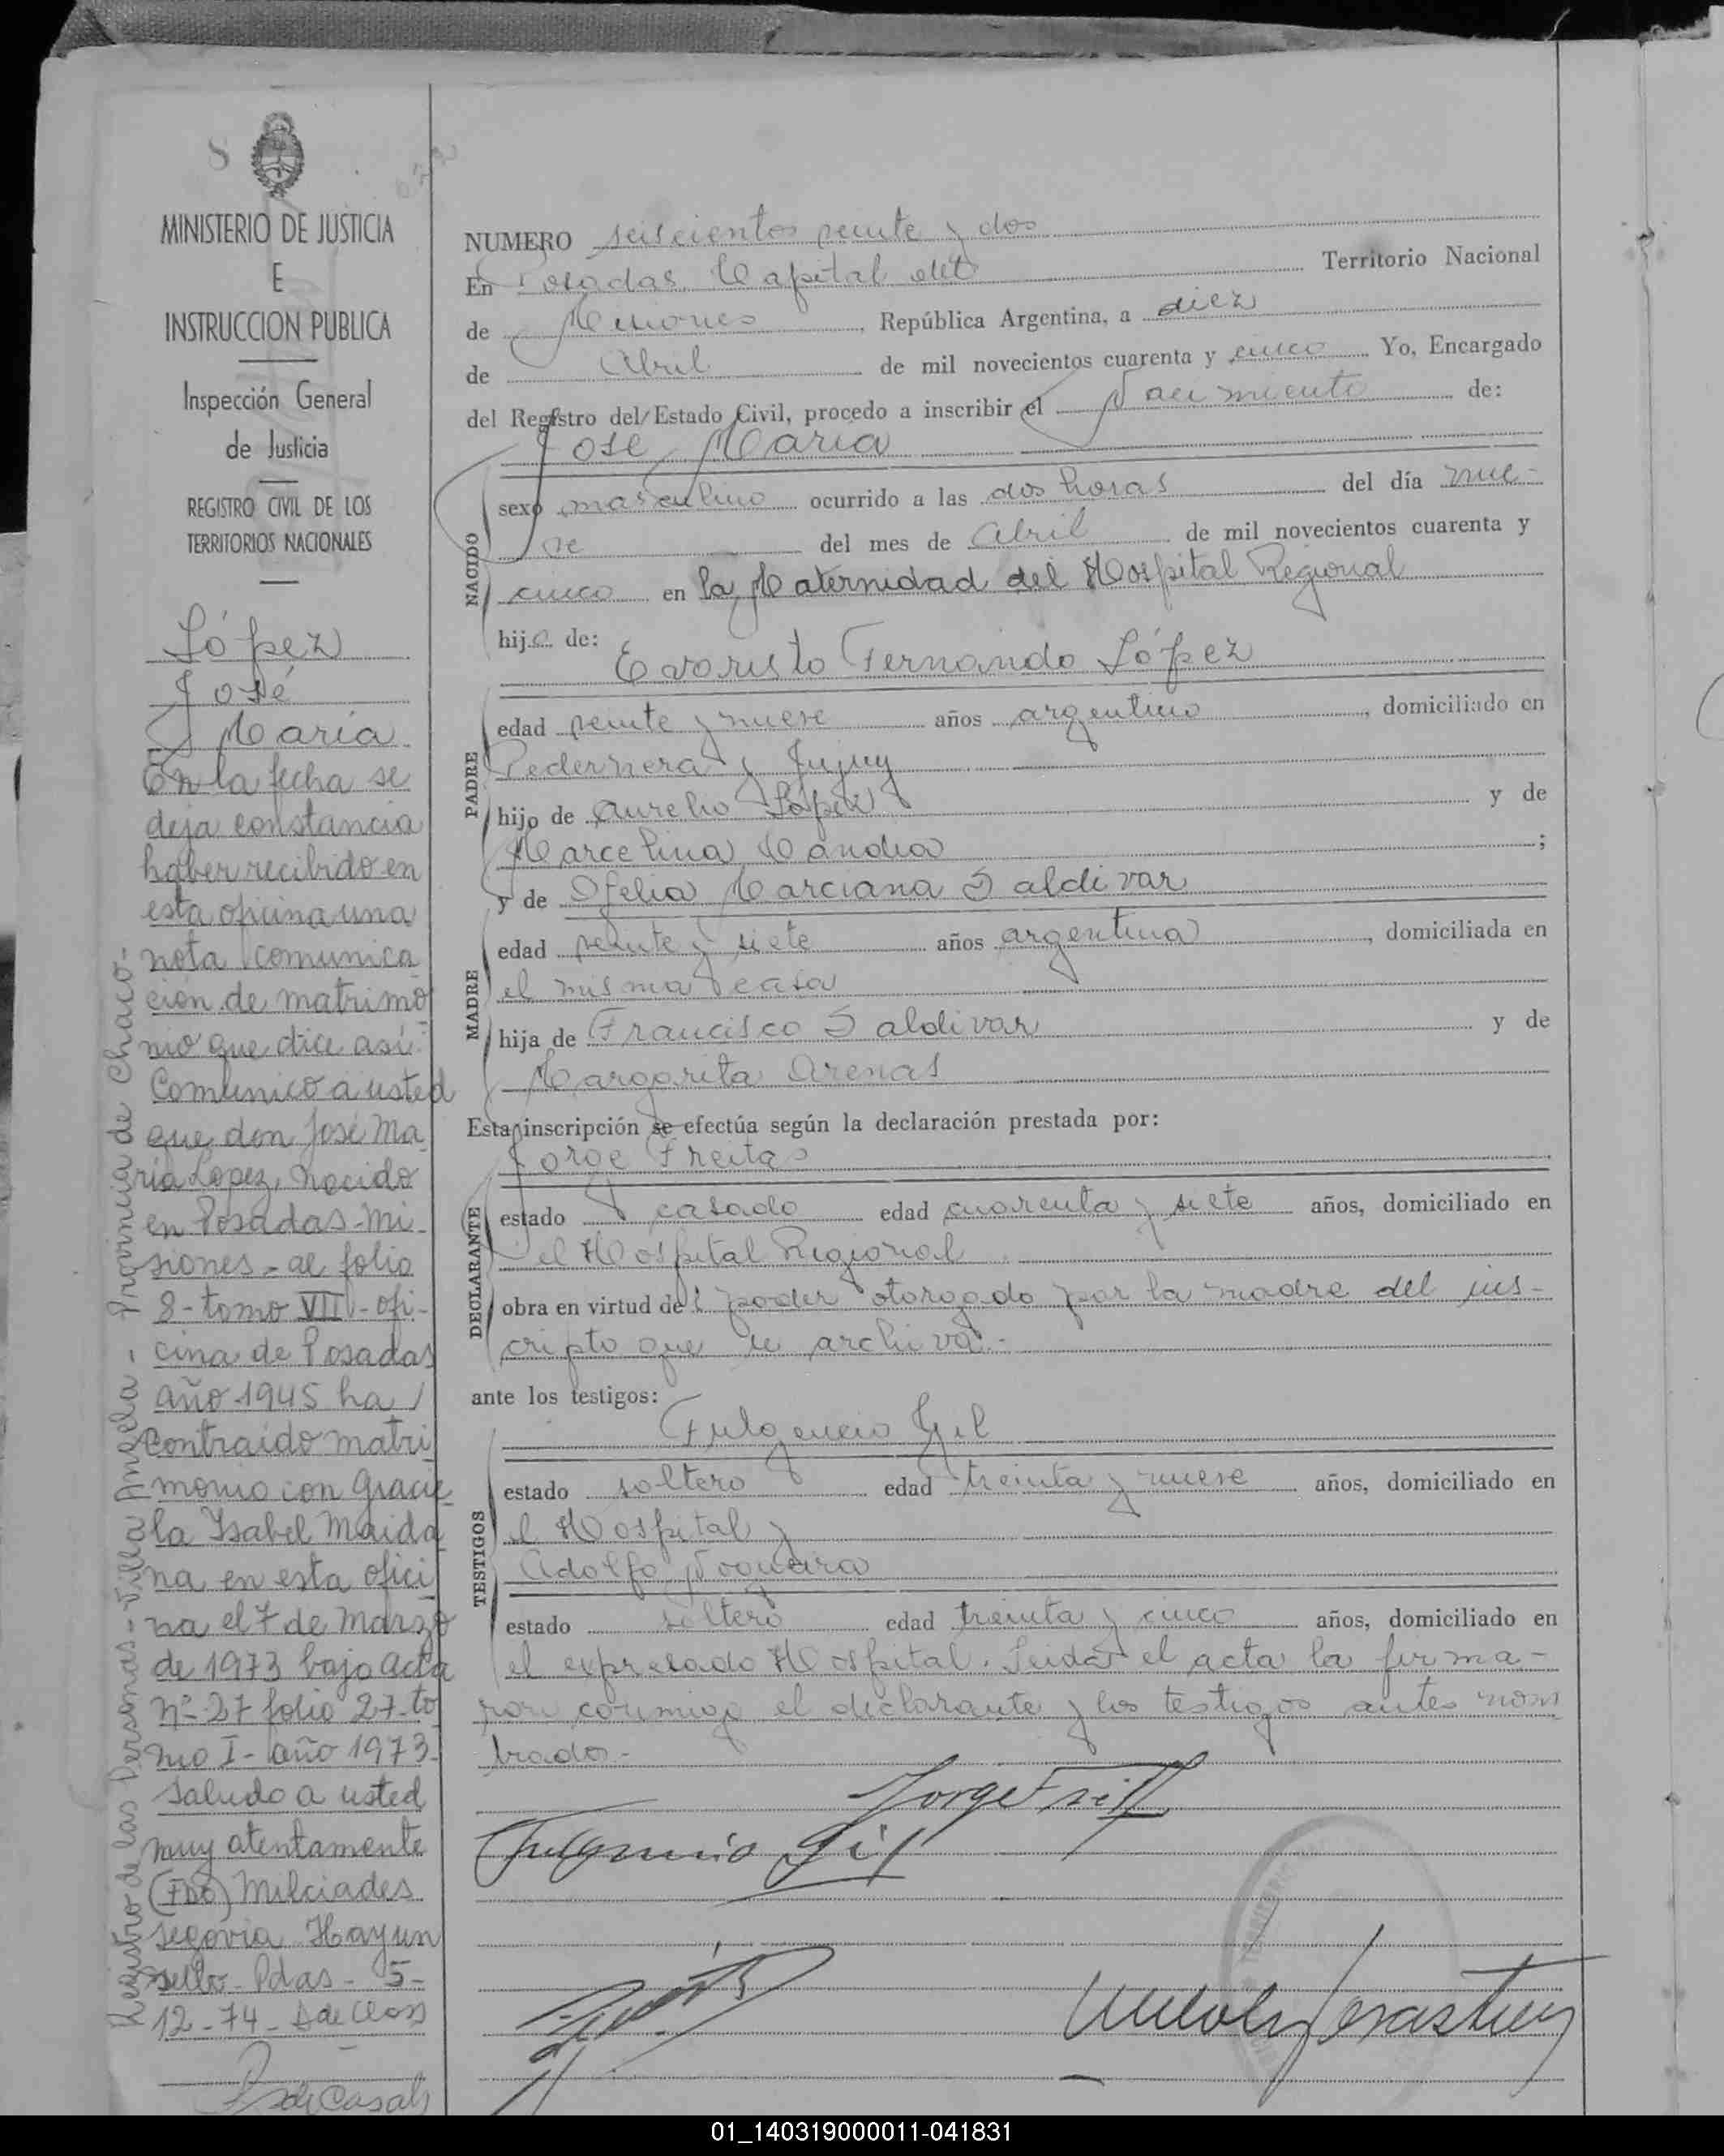 8
MINISTERIO DE JUSTICIA
E
INSTRUCCION PUBLICA
Inspección General
de Justicia
REGISTRO CIVIL DE LOS
TERRITORIOS NACIONALES
López
José
María
En la fecha se
deja constancia
haber recibido en
esta oficina una
nota comunica
ción de matrimo
nio que dice así:
Comunico a usted
que don José Ma
ría Lopez, nacido
en Posadas-Mi-
siones-al folio
8-tomo VII-ofi-
cina de Posadas
año 1945 ha
contraido matri
monio con Gracie
la Isabel Maida
na en esta ofici
na el 7 de Marzo
de 1973 bajo acta
nº 27 folio 27-to
mo I-año 1973-
Saludo a usted
muy atentamente
(Fdo) Milciades
Segovia Hay un
sello-Pdas-5-
12-74-
Registro de las Personas-Villa Angela-Provincia de Chaco-
NUMERO seiscientos veinte y dos
En Posadas, Capital del Territorio Nacional
de Misiones, República Argentina, a diez
de Abril de mil novecientos cuarenta y cinco Yo, Encargado
del Registro del Estado Civil, procedo a inscribir el Nacimiento de:
José María
NACIDO
sexo masculino ocurrido a las dos horas del día nue-
ve del mes de Abril de mil novecientos cuarenta y
cinco en la Maternidad del Hospital Regional
hijo de:
Evaristo Fernando López
PADRE
edad veinte y nueve años argentino, domiciliado en
Pedernera y Jujuy
hijo de Aurelio López y de
Marcelina Candia;
y de Ofelia Marciana Saldivar
MADRE
edad veinte y siete años argentina, domiciliada en
el misma casa
hija de Francisco Saldivar y de
Margarita Arenas
Esta inscripción se efectúa según la declaración prestada por:
Jorge Freitas
DECLARANTE
estado casado edad cuarenta y siete años, domiciliado en
el Hospital Regional
obra en virtud de: poder otorgado por la madre del ins-
cripto que se archiva.-
ante los testigos:
Fulgencio Gil
TESTIGOS
estado soltero edad treinta y nueve años, domiciliado en
el Hospital y
Adolfo Nogueira
estado soltero edad treinta y cinco años, domiciliado en
el expresado Hospital. Leída el acta la firma-
ron conmigo el declarante y los testigos antes nom
brados.-
Jorge Freit
Fulgencio Gil
01_140319000011-041831